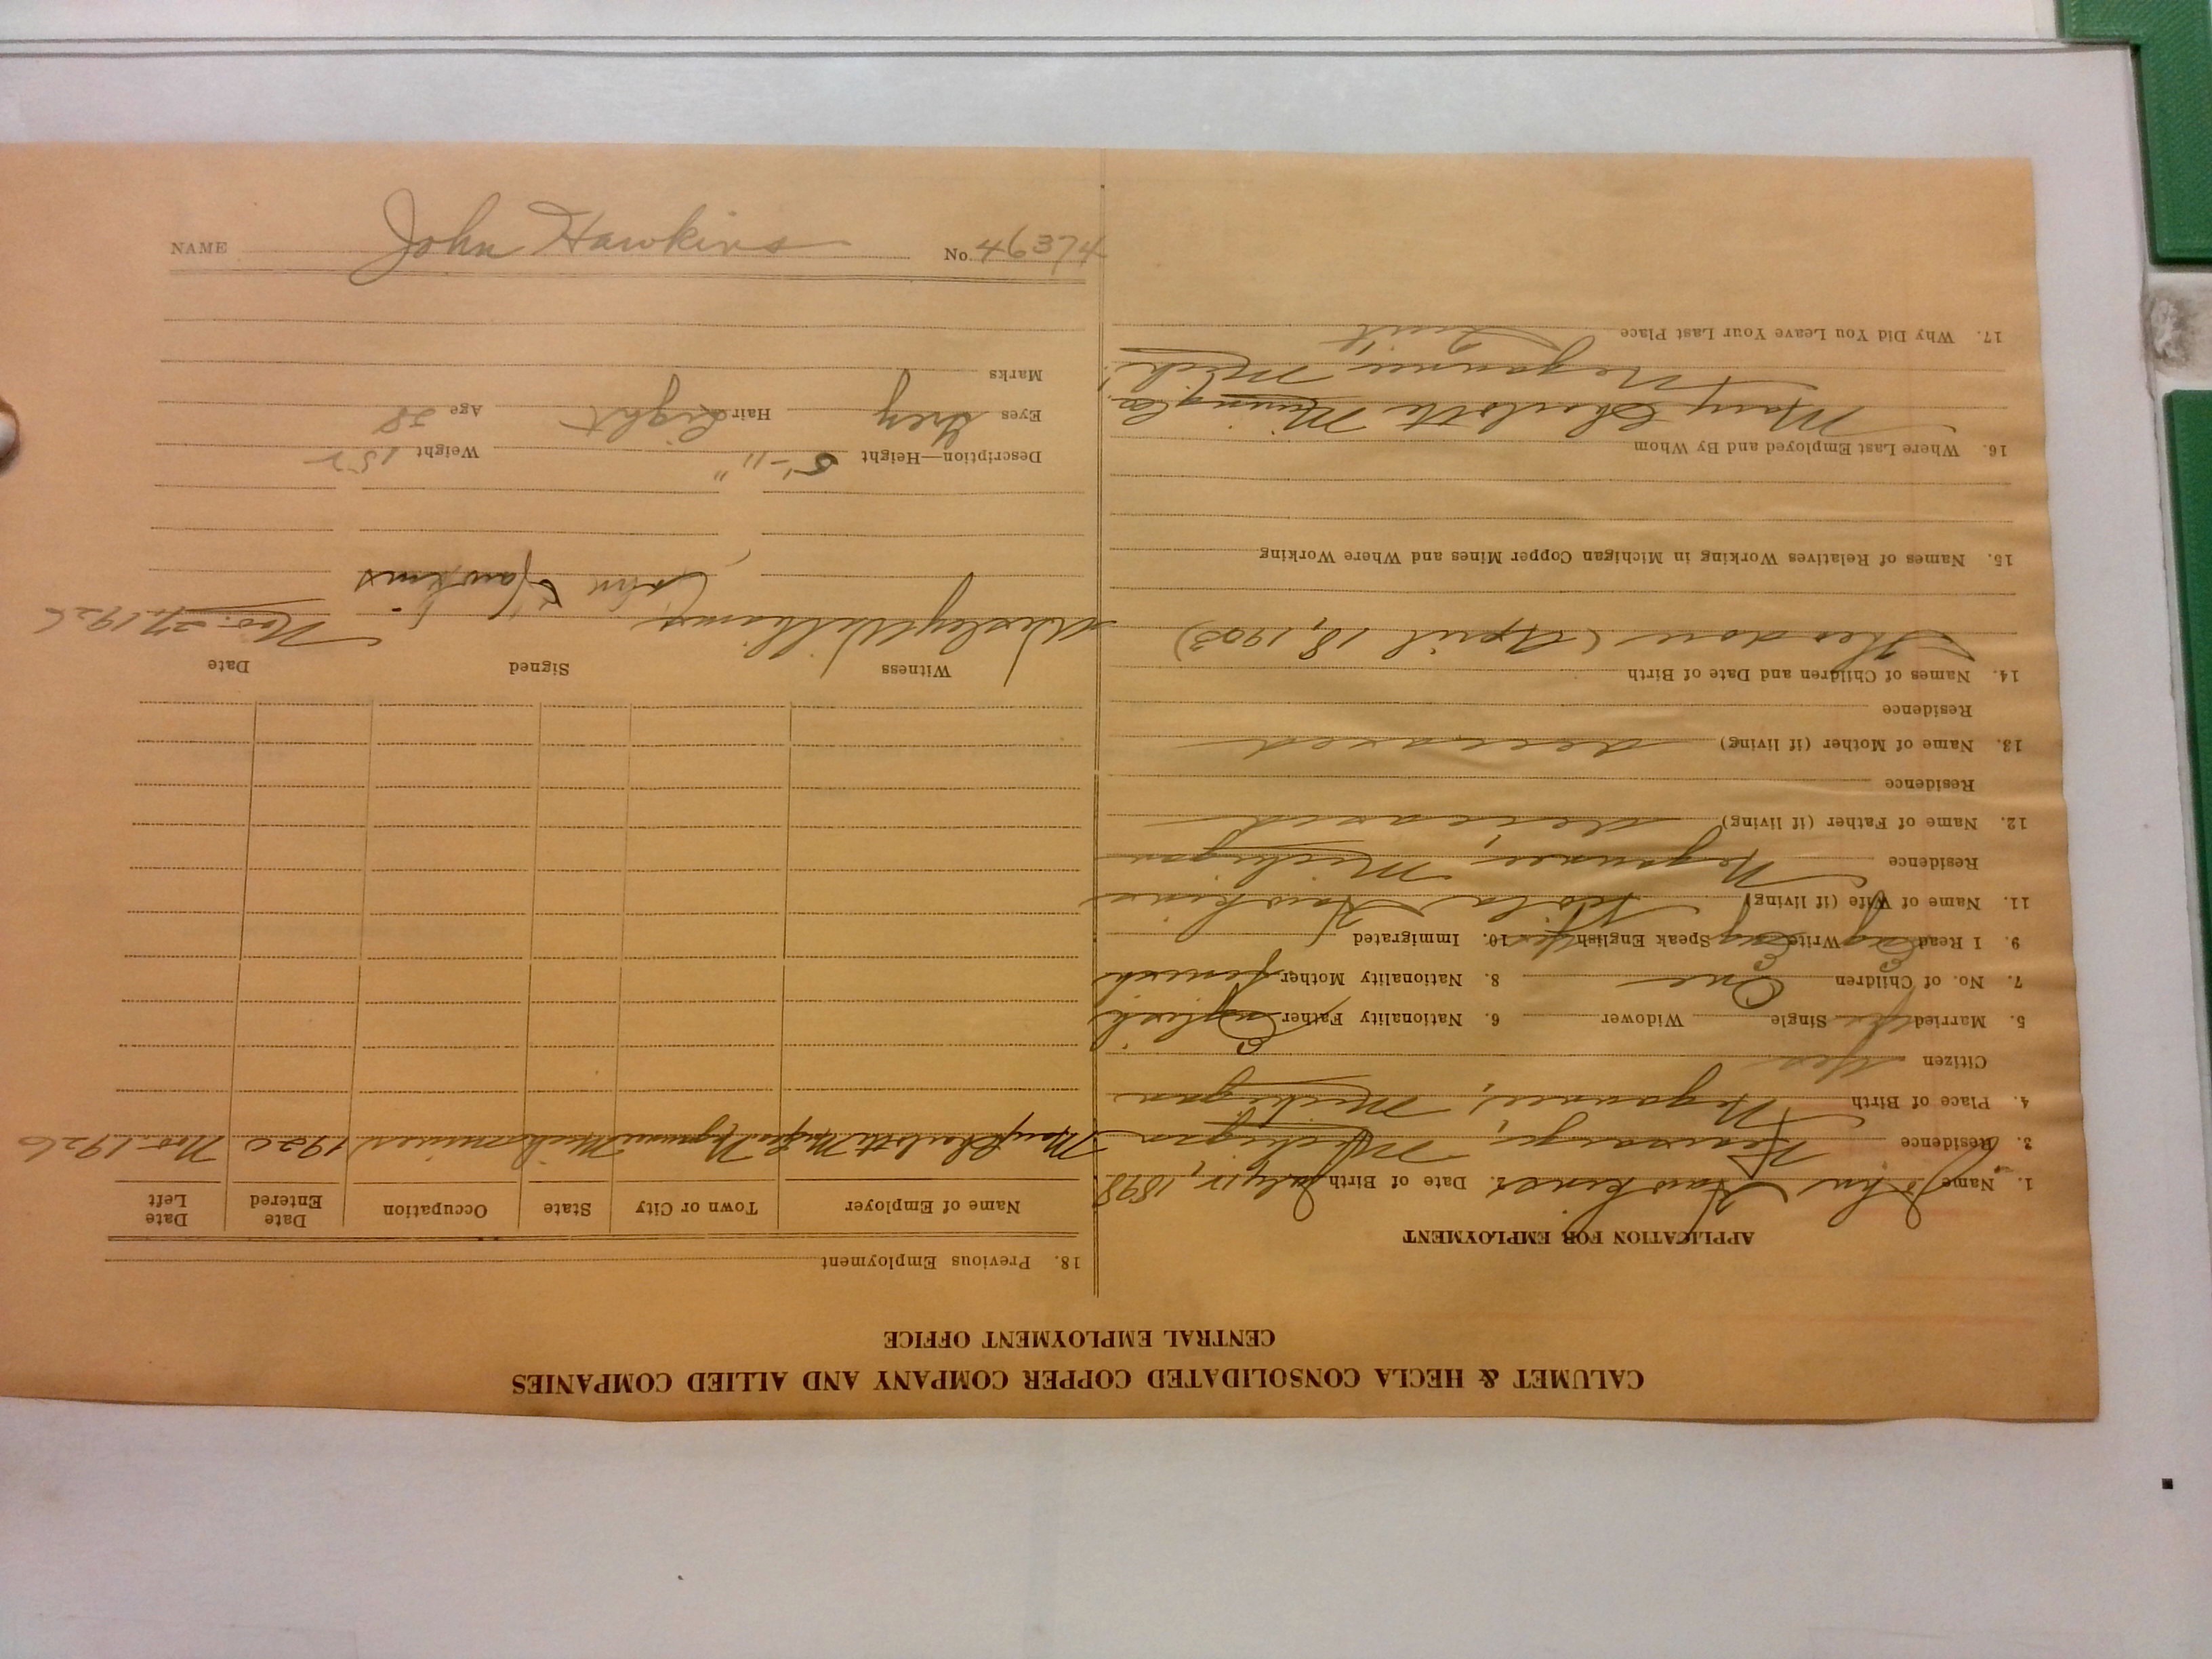 CALUMET & HECLA CONSOLIDATED COPPER COMPANY AND ALLIED COMPANIES
CENTRAL EMPLOYMENT OFFICE
APPLICATION FOR EMPLOYMENT
1. Name John Hawkins 2. Date of Birth July 1898
3. Residence Michigan
4. Place of Birth Negaunee, Michigan
Citizen Yes
5. Married Yes Single Widower 6. Nationality Father English
7. No. of Children One 8. Nationality Mother
9. I Read Eng Write Eng Speak English Yes 10. Immigrated
11. Name of Wife (if living) Hawkins
Residence Negaunee, Michigan
12. Name of Father (if living) deceased
Residence
13. Name of Mother (if living) deceased
Residence
14. Names of Children and Date of Birth
(April 18, 1903)
15. Names of Relatives Working in Michigan Copper Mines and Where Working
16. Where Last Employed and By Whom
Mary Charlotte Mining Co.
Negaunee Mich.
17. Why Did You Leave Your Last Place Quit
18. Previous Employment
Name of Employer Town or City State Occupation Date Entered Date Left
Mary Charlotte Negaunee Mich 1920 Nov. 1926
Witness Signed Date
Wesley Williams John Hawkins Nov. 27, 1926
Description—Height 5'-11" Weight 152
Eyes Grey Hair Light Age 28
Marks
NAME John Hawkins No. 46374